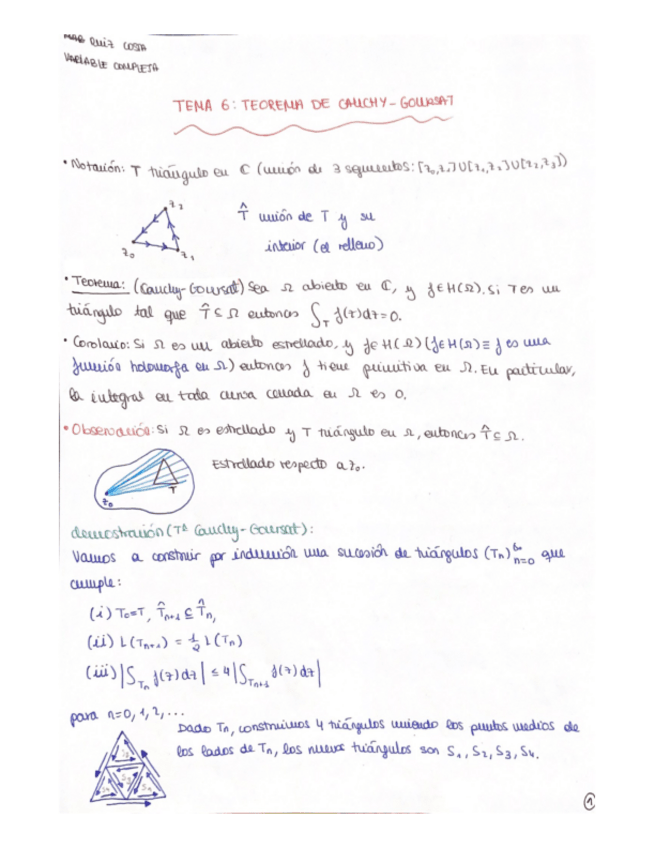 MAR RUIZ COSTA
VARIABLE COMPLETA
TEMA 6: TEOREMA DE CAUCHY-GOURSAT
• Notación: T triángulo en ℂ (unión de 3 segmentos: [z₀,z₁]∪[z₁,z₂]∪[z₂,z₃])
z₂
z₀
z₁
T̂ unión de T y su
interior (el relleno)
• Teorema: (Cauchy-Goursat) Sea Ω abierto en ℂ, y f∈H(Ω). Si T es un
triángulo tal que T̂ ⊆ Ω entonces ∫_T f(z)dz=0.
• Corolario: Si Ω es un abierto estrellado, y f∈H(Ω) (f∈H(Ω) ≡ f es una
función holomorfa en Ω) entonces f tiene primitiva en Ω. En particular,
la integral en toda curva cerrada en Ω es 0.
• Observación: Si Ω es estrellado y T triángulo en Ω, entonces T̂ ⊆ Ω.
Estrellado respecto a z₀.
T
z₀
demostración (Tª Cauchy-Goursat):
Vamos a construir por inducción una sucesión de triángulos (Tn)_{n=0}^∞ que
cumple:
(i) T₀=T, T̂ₙ₊₁ ⊆ T̂ₙ,
(ii) L(Tₙ₊₁) = ½ L(Tₙ)
(iii) |∫_{Tₙ} f(z)dz| ≤ 4 |∫_{Tₙ₊₁} f(z)dz|
para n=0, 1, 2, ...
Dado Tn, construimos 4 triángulos uniendo los puntos medios de
los lados de Tn, los nuevos triángulos son S₁, S₂, S₃, S₄.
1